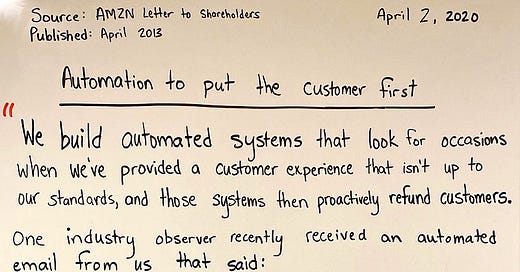 Source: AMZN Letter to Shareholders
April 2, 2020
Published: April 2013
Automation to put the customer first
"We build automated systems that look for occasions
when we've provided a customer experience that isn't up to
our standards, and those systems then proactively refund customers.
One industry observer recently received an automated
email from us that said: